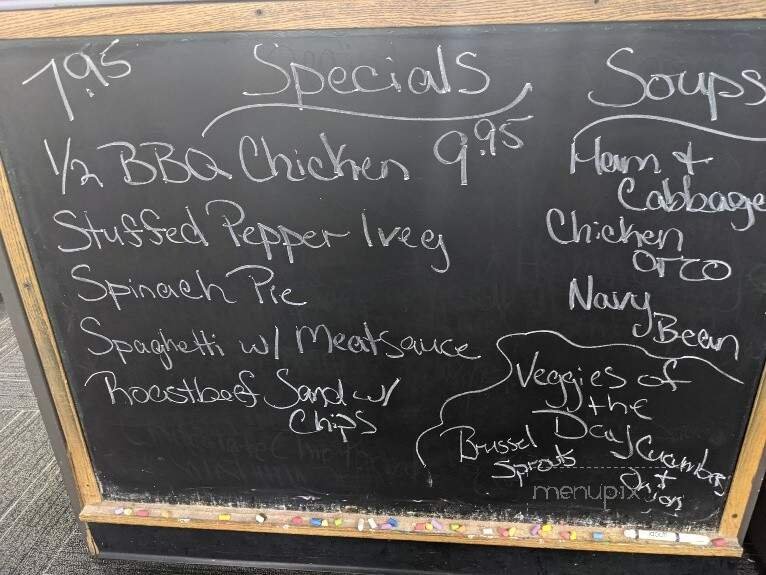 7.95 Specials
1/2 BBQ Chicken 9.95
Stuffed Pepper 1 veg
Spinach Pie
Spaghetti w/ Meatsauce
Roastbeef Sand w/
Chips
Soups
Ham +
Cabbage
Chicken
orzo
Navy
Bean
Veggies of
the
Day
Brussel
Sprouts
Cucumber
+
Onions
menupix